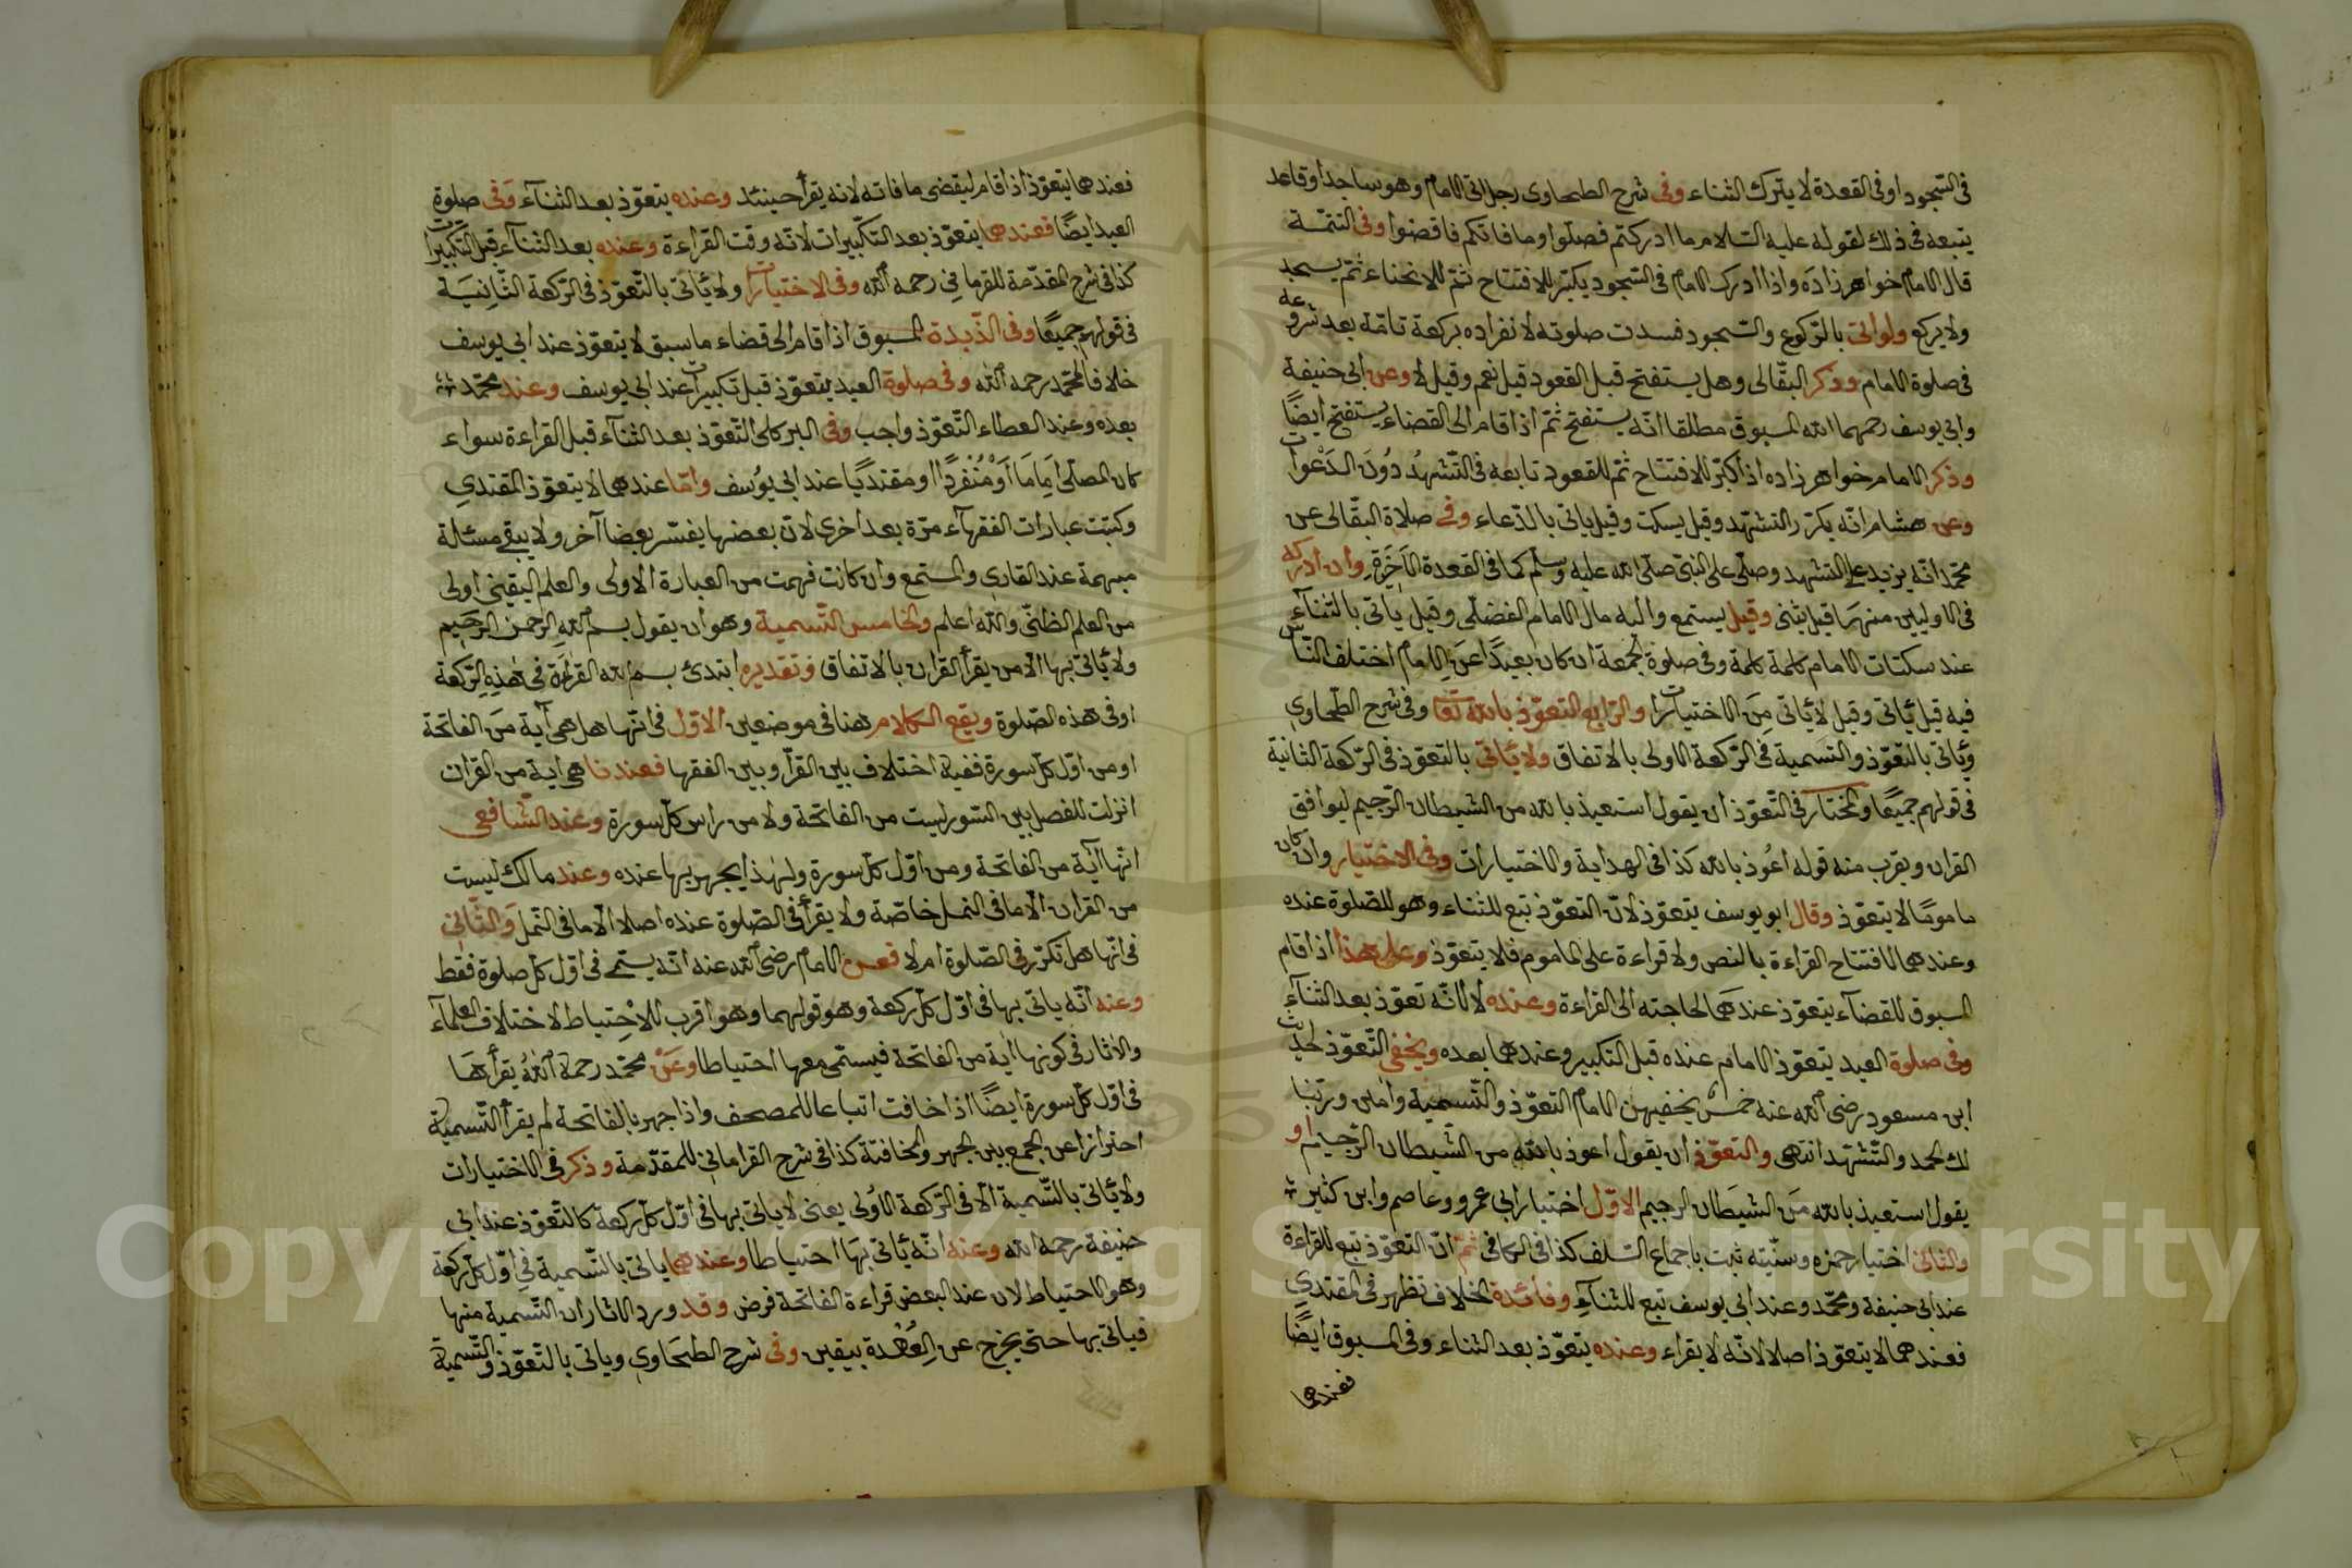 في السجود او في القعدة لا يترك الثناء وفي شرح الطحاوى رجل اتى الامام وهو ساجد او قاعد
يتبعه في ذلك لقوله عليه السلام ما ادركتم فصلوا وما فاتكم فاقضوا وفي التتمة
قال الامام خواهر زاده واذا ادرك الامام في السجود يكبر للافتتاح ثم للانحناء ثم يسجد
ولا يركع ولو اتى بالركوع والسجود فسدت صلوته لانفراده بركعة تامة بعد شروعه
في صلوة الامام وذكر البقالى وهل يستفتح قبل القعود قيل نعم وقيل لا وعن ابى حنيفة
وابى يوسف رحمهما الله المسبوق مطلقا انه يستفتح ثم اذا قام الى القضاء يستفتح ايضًا
وذكر الامام خواهر زاده اذا كبر للافتتاح ثم للقعود تابعه في التشهد دون الدعوات
وعن هشام انه يكرر التشهد وقيل يسكت وقيل ياتى بالدعاء وفي صلاة البقالى عن
محمد انه يزيد على التشهد وصلى على النبى صلى الله عليه وسلم كما في القعدة الاخيرة وان ادركه
في الاوليين منهما قيل يثنى وقيل يستمع واليه مال الامام الفضلى وقيل ياتى بالثناء
عند سكتات الامام كلمة كلمة وفي صلوة الجمعة ان كان بعيدًا عن الامام اختلف الناس
فيه قيل ياتى وقيل لا ياتى من الاختيارات والرابع التعوذ بالله تعا وفي شرح الطحاوى
وياتى بالتعوذ والتسمية في الركعة الاولى بالاتفاق ولا ياتى بالتعوذ في الركعة الثانية
في قولهم جميعًا والمختار في التعوذ ان يقول استعيذ بالله من الشيطان الرجيم ليوافق
القران ويقرب منه قوله اعوذ بالله كذا في الهداية والاختيارات وفي الاختيار وان كان
مامومًا لا يتعوذ وقال ابو يوسف يتعوذ لان التعوذ تبع للثناء وهو للصلوة عنده
وعندهما لافتتاح القراءة بالنص ولا قراءة على الماموم فلا يتعوذ وعلى هذا اذا قام
المسبوق للقضاء يتعوذ عندهما لحاجته الى القراءة وعنده لا لانه تعوذ بعد الثناء
وفي صلوة العيد يتعوذ الامام عنده قبل التكبير وعندهما بعده ويخفى التعوذ لحديث
ابن مسعود رضى الله عنه خمس يخفيهن الامام التعوذ والتسمية وامين وربنا
لك الحمد والتشهد انتهى والتعوذ ان يقول اعوذ بالله من الشيطان الرجيم او
يقول استعيذ بالله من الشيطان الرجيم الاول اختيار ابى عمرو وعاصم وابن كثير
والثانى اختيار حمزه وسنيته ثبت باجماع السلف كذا في الكافى ثم ان التعوذ تبع للقراءة
عند ابى حنيفة ومحمد وعند ابى يوسف تبع للثناء وفائدة الخلاف تظهر في المقتدى
فعندهما لا يتعوذ اصلا لانه لا يقراء وعنده يتعوذ بعد الثناء وفي المسبوق ايضًا
فعندهما
فعندهما يتعوذ اذا قام ليقضى ما فاته لانه يقرأ حينئذ وعنده يتعوذ بعد الثناء وفي صلوة
العيد ايضًا فعندهما يتعوذ بعد التكبيرات لانه وقت القراءة وعنده بعد الثناء قبل التكبيرات
كذا في شرح المقدمة للقرمانى رحمه الله وفي الاختيارات ولا ياتى بالتعوذ في الركعة الثانية
في قولهم جميعًا وفي الذبدة المسبوق اذا قام الى قضاء ما سبق لا يتعوذ عند ابى يوسف
خلافا لمحمد رحمه الله وفي صلوة العيد يتعوذ قبل تكبيرات عند ابى يوسف وعند محمد
بعده وعند العطاء التعوذ واجب وفي البركلى التعوذ بعد الثناء قبل القراءة سواء
كان المصلى اماما او منفردًا او مقتديًا عند ابى يوسف واما عندهما لا يتعوذ المقتدى
وكتبت عبارات الفقهاء مرة بعد اخرى لان بعضها يفسر بعضا آخر ولا يبقى مسئلة
مبهمة عند القارى والمستمع وان كانت فهمت من العبارة الاولى والعلم اليقينى اولى
من العلم الظنى والله اعلم والخامس التسمية وهو ان يقول بسم الله الرحمن الرحيم
ولا ياتى بها الا من يقرأ القران بالاتفاق وتقديره ابتدئ بسم الله القراءة في هذه الركعة
او في هذه الصلوة ويقع الكلام هنا في موضعين الاول في انها هل هى آية من الفاتحة
او من اول كل سورة ففيه اختلاف بين القرآ وبين الفقها فعندنا هى اية من القران
انزلت للفصل بين السور ليست من الفاتحة ولا من راس كل سورة وعند الشافعى
انها آية من الفاتحة ومن اول كل سورة ولهذا يجهر بها عنده وعند مالك ليست
من القران الا ما في النمل خاصة ولا يقرأ في الصلوة عنده اصلا الا ما في النمل والثانى
في انها هل تكرر في الصلوة ام لا فعن الامام رضى الله عنه انه يسمى في اول كل صلوة فقط
وعنه انه ياتى بها في اول كل ركعة وهو قولهما وهو اقرب للاحتياط لاختلاف العلماء
والاثار في كونها اية من الفاتحة فيسمى معها احتياطا وعن محمد رحمه الله يقرأها
في اول كل سورة ايضًا اذا خافت اتباعا للمصحف واذا جهر بالفاتحة لم يقرأ التسمية
احترازا عن الجمع بين الجهر والمخافتة كذا في شرح القرامانى للمقدمة وذكر في الاختيارات
ولا ياتى بالتسمية الا في الركعة الاولى يعنى لا ياتى بها في اول كل ركعة كالتعوذ عند ابى
حنيفة رحمه الله وعنه انه ياتى بها احتياطا وعندهما ياتى بالتسمية في اول كل ركعة
وهو الاحتياط لان عند البعض قراءة الفاتحة فرض وقد ورد الاثار ان التسمية منها
فياتى بها حتى يخرج عن العهدة بيقين وفي شرح الطحاوى وياتى بالتعوذ والتسمية
Copyright © King Saud University